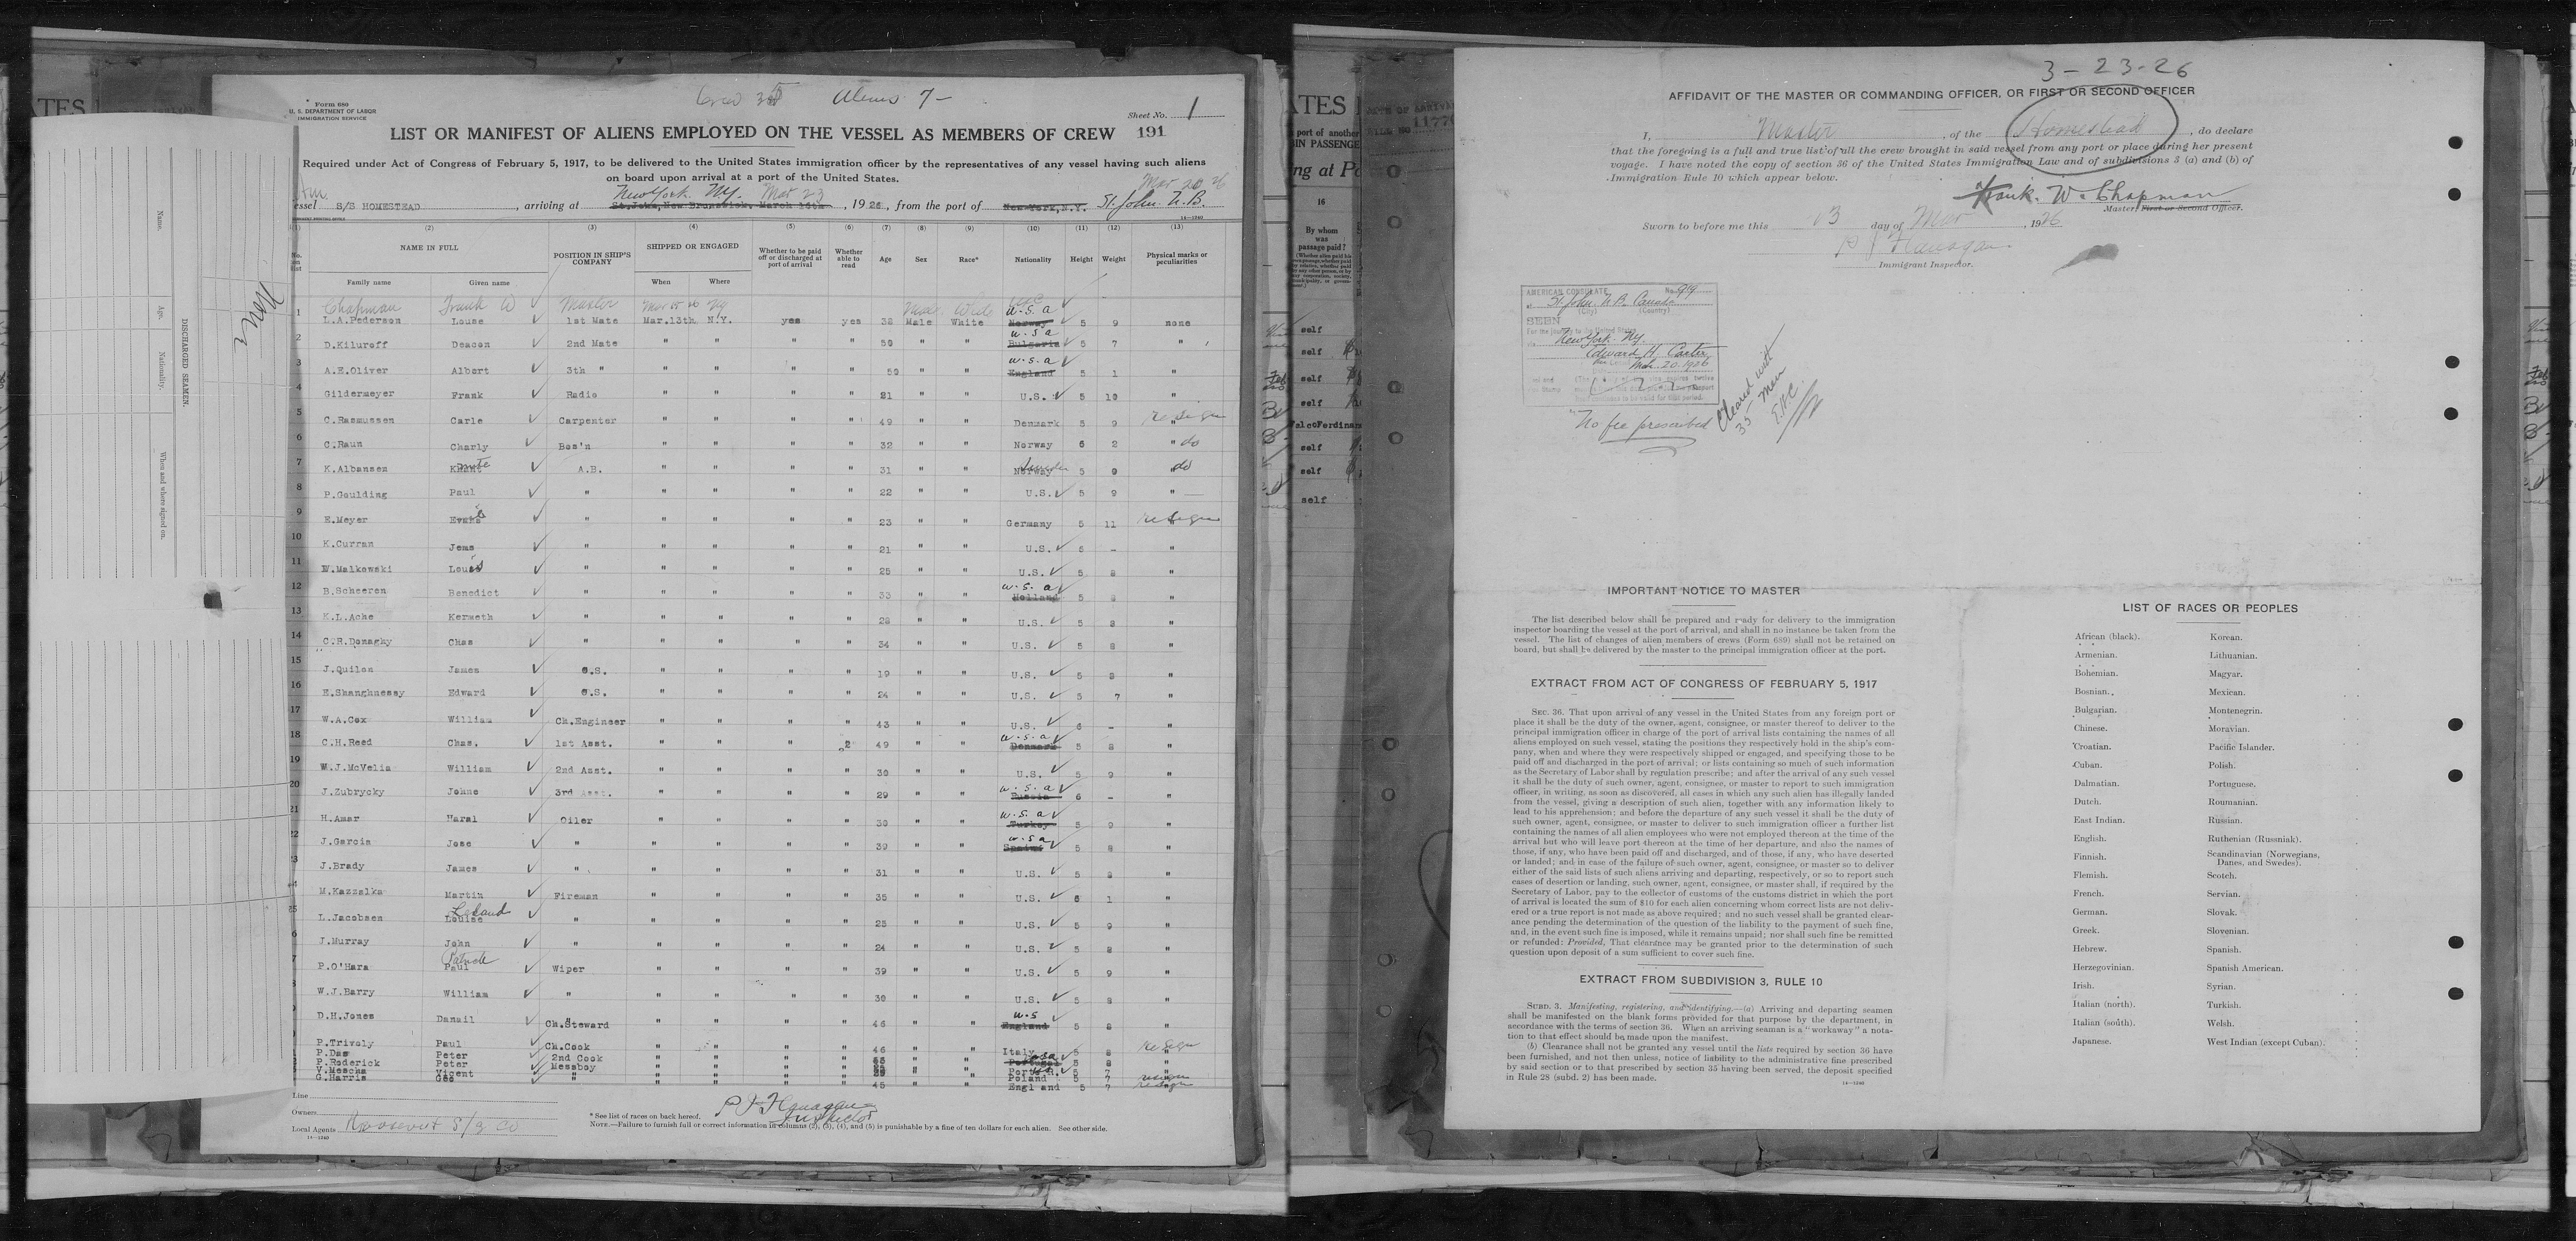 Crew 35 Aliens 7 —
Form 680
U. S. DEPARTMENT OF LABOR
IMMIGRATION SERVICE
Sheet No. 1
LIST OR MANIFEST OF ALIENS EMPLOYED ON THE VESSEL AS MEMBERS OF CREW 191
Required under Act of Congress of February 5, 1917, to be delivered to the United States immigration officer by the representatives of any vessel having such aliens
on board upon arrival at a port of the United States.
New York. N.Y. Mar 23 Mar 20 26
essel S/S HOMESTEAD, arriving at St.John, New Brunswick, March 16th, 1926, from the port of New York, N.Y. St. John. N.B.
14—1240
(1) (2) (3) (4) (5) (6) (7) (8) (9) (10) (11) (12) (13)
NAME IN FULL POSITION IN SHIP'S COMPANY SHIPPED OR ENGAGED Whether to be paid off or discharged at port of arrival Whether able to read Age Sex Race* Nationality Height Weight Physical marks or peculiarities
Family name Given name When Where
Chapman Frank W Master Male
1 L.A.Pederson Louse 1st Mate Mar.13th N.Y. yes yes 38 Male White Norway U.S.A 5 9 none
2 D.Kiluroff Deacon 2nd Mate " " " " 50 " " Bulgaria U.S.A 5 7 "
3 A.E.Oliver Albert 3th " " " " " 50 " " England U.S.A 5 1 "
4 Gildermeyer Frank Radio " " " " 21 " " U.S. 5 10 "
5 C.Rasmussen Carle Carpenter " " " " 49 " " Denmark 5 9 " resign
6 C.Raun Charly Bos'n " " " " 32 " " Norway 6 2 " do
7 K.Albansen Knute A.B. " " " " 31 " " Norway Sweden 5 9 " do
8 P.Goulding Paul " " " " " 22 " " U.S. 5 9 "
9 E.Meyer " " " " " 23 " " Germany 5 11 resign
10 K.Curran Jems " " " " " 21 " " U.S. 6 - "
11 W.Malkowski Louis " " " " " 25 " " U.S. 5 8 "
12 B.Scheeren Benedict " " " " " 33 " " Holland U.S.A 5 8 "
13 K.L.Ache Kermeth " " " " " 28 " " U.S. 5 8 "
14 C.R.Donaghy Chas " " " " " 34 " " U.S. 5 8 "
15 J.Quilen James O.S. " " " " 19 " " U.S. 5 8 "
16 E.Shanghnessy Edward O.S. " " " " 24 " " U.S. 5 7 "
17 W.A.Cox William Ch.Engineer " " " " 43 " " U.S. 6 - "
18 C.H.Reed Chas. 1st Asst. " " " " 49 " " Denmark U.S.A 5 8 "
19 W.J.McVelia William 2nd Asst. " " " " 30 " " U.S. 5 9 "
20 J.Zubrycky Johne 3rd Asst. " " " " 29 " " Russia U.S.A 6 - "
21 H.Amar Haral Oiler " " " " 30 " " Turkey U.S.A 5 9 "
22 J.Garcia Jose " " " " " 39 " " Spain U.S.A 5 8 "
3 J.Brady James " " " " " 31 " " U.S. 5 8 "
4 M.Kazzalka Martin Fireman " " " " 35 " " U.S. 6 1 "
25 L.Jacobsen Louise Leland " " " " " 25 " " U.S. 5 9 "
6 J.Murray John " " " " " 24 " " U.S. 5 8 "
7 P.O'Hara Paul Patrick Wiper " " " " 39 " " U.S. 5 9 "
8 W.J.Barry William " " " " " 30 " " U.S. 5 8 "
9 D.H.Jones Daneil Ch.Steward " " " " 46 " " England U.S 5 8 "
P.Trivoly Paul Ch.Cook " " " " 46 " " Italy 5 8 resign
P.Das Peter 2nd Cook " " " " " " Portugal 5 8 "
P.Roderick Peter Messboy " " " " " " Porto R. 5 7 "
V.Mescha Vicent " " " " " " " Poland 5 7 resign
G.Harris Geo " " " " " 45 " " England 5 7 resign
Line
Owners
Local Agents Roosevelt S/S Co
14—1240
* See list of races on back hereof. P J Flanagan Inspector
NOTE.—Failure to furnish full or correct information in columns (2), (3), (4), and (5) is punishable by a fine of ten dollars for each alien. See other side.
DISCHARGED SEAMEN.
Name.
Age.
Nationality.
When and where signed on.
None
ATES
ng at Po
port of another
16
By whom
was
passage paid?
self
self
self
self
self
self
self
3-23-26
AFFIDAVIT OF THE MASTER OR COMMANDING OFFICER, OR FIRST OR SECOND OFFICER
I, Master, of the Homestead, do declare
that the foregoing is a full and true list of all the crew brought in said vessel from any port or place during her present
voyage. I have noted the copy of section 36 of the United States Immigration Law and of subdivisions 3 (a) and (b) of
Immigration Rule 10 which appear below.
Frank. W. Chapman
Master, First or Second Officer.
Sworn to before me this 23 day of Mar, 1926
P J Flanagan
Immigrant Inspector.
AMERICAN CONSULATE No. 919
at St. John. N.B. Canada
(City) (Country)
SEEN
For the journey to the United States
via New York. N.Y.
Edward H. Carter
Mch. 20. 1926
"No fee prescribed
Cleared with
35 men
E.H.C.
IMPORTANT NOTICE TO MASTER
The list described below shall be prepared and ready for delivery to the immigration
inspector boarding the vessel at the port of arrival, and shall in no instance be taken from the
vessel. The list of changes of alien members of crews (Form 689) shall not be retained on
board, but shall be delivered by the master to the principal immigration officer at the port.
EXTRACT FROM ACT OF CONGRESS OF FEBRUARY 5, 1917
SEC. 36. That upon arrival of any vessel in the United States from any foreign port or
place it shall be the duty of the owner, agent, consignee, or master thereof to deliver to the
principal immigration officer in charge of the port of arrival lists containing the names of all
aliens employed on such vessel, stating the positions they respectively hold in the ship's com-
pany, when and where they were respectively shipped or engaged, and specifying those to be
paid off and discharged in the port of arrival; or lists containing so much of such information
as the Secretary of Labor shall by regulation prescribe; and after the arrival of any such vessel
it shall be the duty of such owner, agent, consignee, or master to report to such immigration
officer, in writing, as soon as discovered, all cases in which any such alien has illegally landed
from the vessel, giving a description of such alien, together with any information likely to
lead to his apprehension; and before the departure of any such vessel it shall be the duty of
such owner, agent, consignee, or master to deliver to such immigration officer a further list
containing the names of all alien employees who were not employed thereon at the time of the
arrival but who will leave port thereon at the time of her departure, and also the names of
those, if any, who have been paid off and discharged, and of those, if any, who have deserted
or landed; and in case of the failure of such owner, agent, consignee, or master so to deliver
either of the said lists of such aliens arriving and departing, respectively, or so to report such
cases of desertion or landing, such owner, agent, consignee, or master shall, if required by the
Secretary of Labor, pay to the collector of customs of the customs district in which the port
of arrival is located the sum of $10 for each alien concerning whom correct lists are not deliv-
ered or a true report is not made as above required; and no such vessel shall be granted clear-
ance pending the determination of the question of the liability to the payment of such fine,
and, in the event such fine is imposed, while it remains unpaid; nor shall such fine be remitted
or refunded: Provided, That clearance may be granted prior to the determination of such
question upon deposit of a sum sufficient to cover such fine.
EXTRACT FROM SUBDIVISION 3, RULE 10
SUBD. 3. Manifesting, registering, and identifying.—(a) Arriving and departing seamen
shall be manifested on the blank forms provided for that purpose by the department, in
accordance with the terms of section 36. When an arriving seaman is a "workaway" a nota-
tion to that effect should be made upon the manifest.
(b) Clearance shall not be granted any vessel until the lists required by section 36 have
been furnished, and not then unless, notice of liability to the administrative fine prescribed
by said section or to that prescribed by section 35 having been served, the deposit specified
in Rule 28 (subd. 2) has been made.
14—1240
LIST OF RACES OR PEOPLES
African (black). Korean.
Armenian. Lithuanian.
Bohemian. Magyar.
Bosnian. Mexican.
Bulgarian. Montenegrin.
Chinese. Moravian.
Croatian. Pacific Islander.
Cuban. Polish.
Dalmatian. Portuguese.
Dutch. Roumanian.
East Indian. Russian.
English. Ruthenian (Russniak).
Finnish. Scandinavian (Norwegians, Danes, and Swedes).
Flemish. Scotch.
French. Servian.
German. Slovak.
Greek. Slovenian.
Hebrew. Spanish.
Herzegovinian. Spanish American.
Irish. Syrian.
Italian (north). Turkish.
Italian (south). Welsh.
Japanese. West Indian (except Cuban).